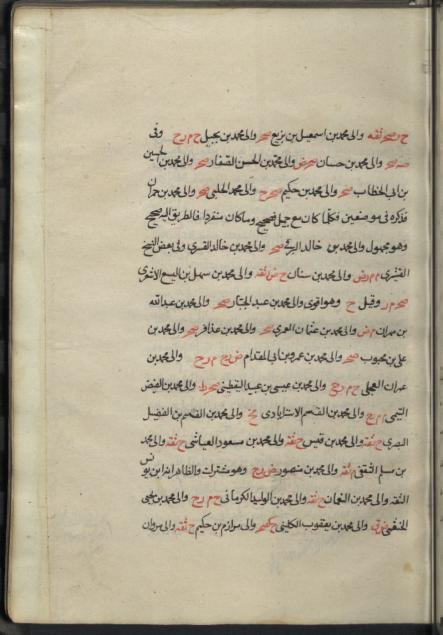 ح م صحر ثقه والى محمد بن اسمعيل بن بزيع صحر والى محمد بن بجيل ح م رح وفى
صه صحر والى محمد بن حسان صحر ض والى محمد بن الحسن الصفار صحر والى محمد بن الحسين
بن ابى الخطاب صحر والى محمد بن حكيم صحر ح والى محمد الحلبى صحر والى محمد بن حمران
فذكره فى موضعين فكلما كان مع جميل صحيح وما كان منفردا فالطريق اليه صحيح
وهو مجهول والى محمد بن خالد البرقى صحر والى محمد بن خالد القسرى وفى بعض النسخ
القشيرى م م رض والى محمد بن سنان ح ض ثقه والى محمد بن سهل بن اليسع الاشعرى
صحر م ر وقيل ح وهو اقوى والى محمد بن عبد الجبار صحر والى محمد بن عبد الله
بن مهران م ض والى محمد بن عثمان العمرى صحر والى محمد بن عذافر صحر والى محمد بن
على بن محبوب صحر والى محمد بن عمرو بن ابى المقدام ض رح م رح والى محمد بن
عمران العجلى ح م رح والى محمد بن عيسى بن عبيد اليقطينى صحر والى محمد بن الفيض
التيمى م م رح والى محمد بن القسم الاسترابادى والى محمد بن القسم بن الفضل
البصرى ح ثقه والى محمد بن قيس ح ثقه والى محمد بن مسعود العياشى ح ثقه والى محمد
بن مسلم الثقفى م ثقه والى محمد بن منصور ض رح وهو مشترك والظاهر انه ابن يونس
الثقه والى محمد بن النعمان ح ثقه والى محمد بن الوليد الكرمانى ح م رح والى محمد بن يحيى
الخثعمى والى محمد بن يعقوب الكلينى والى مرازم بن حكيم ح ثقه والى مروان